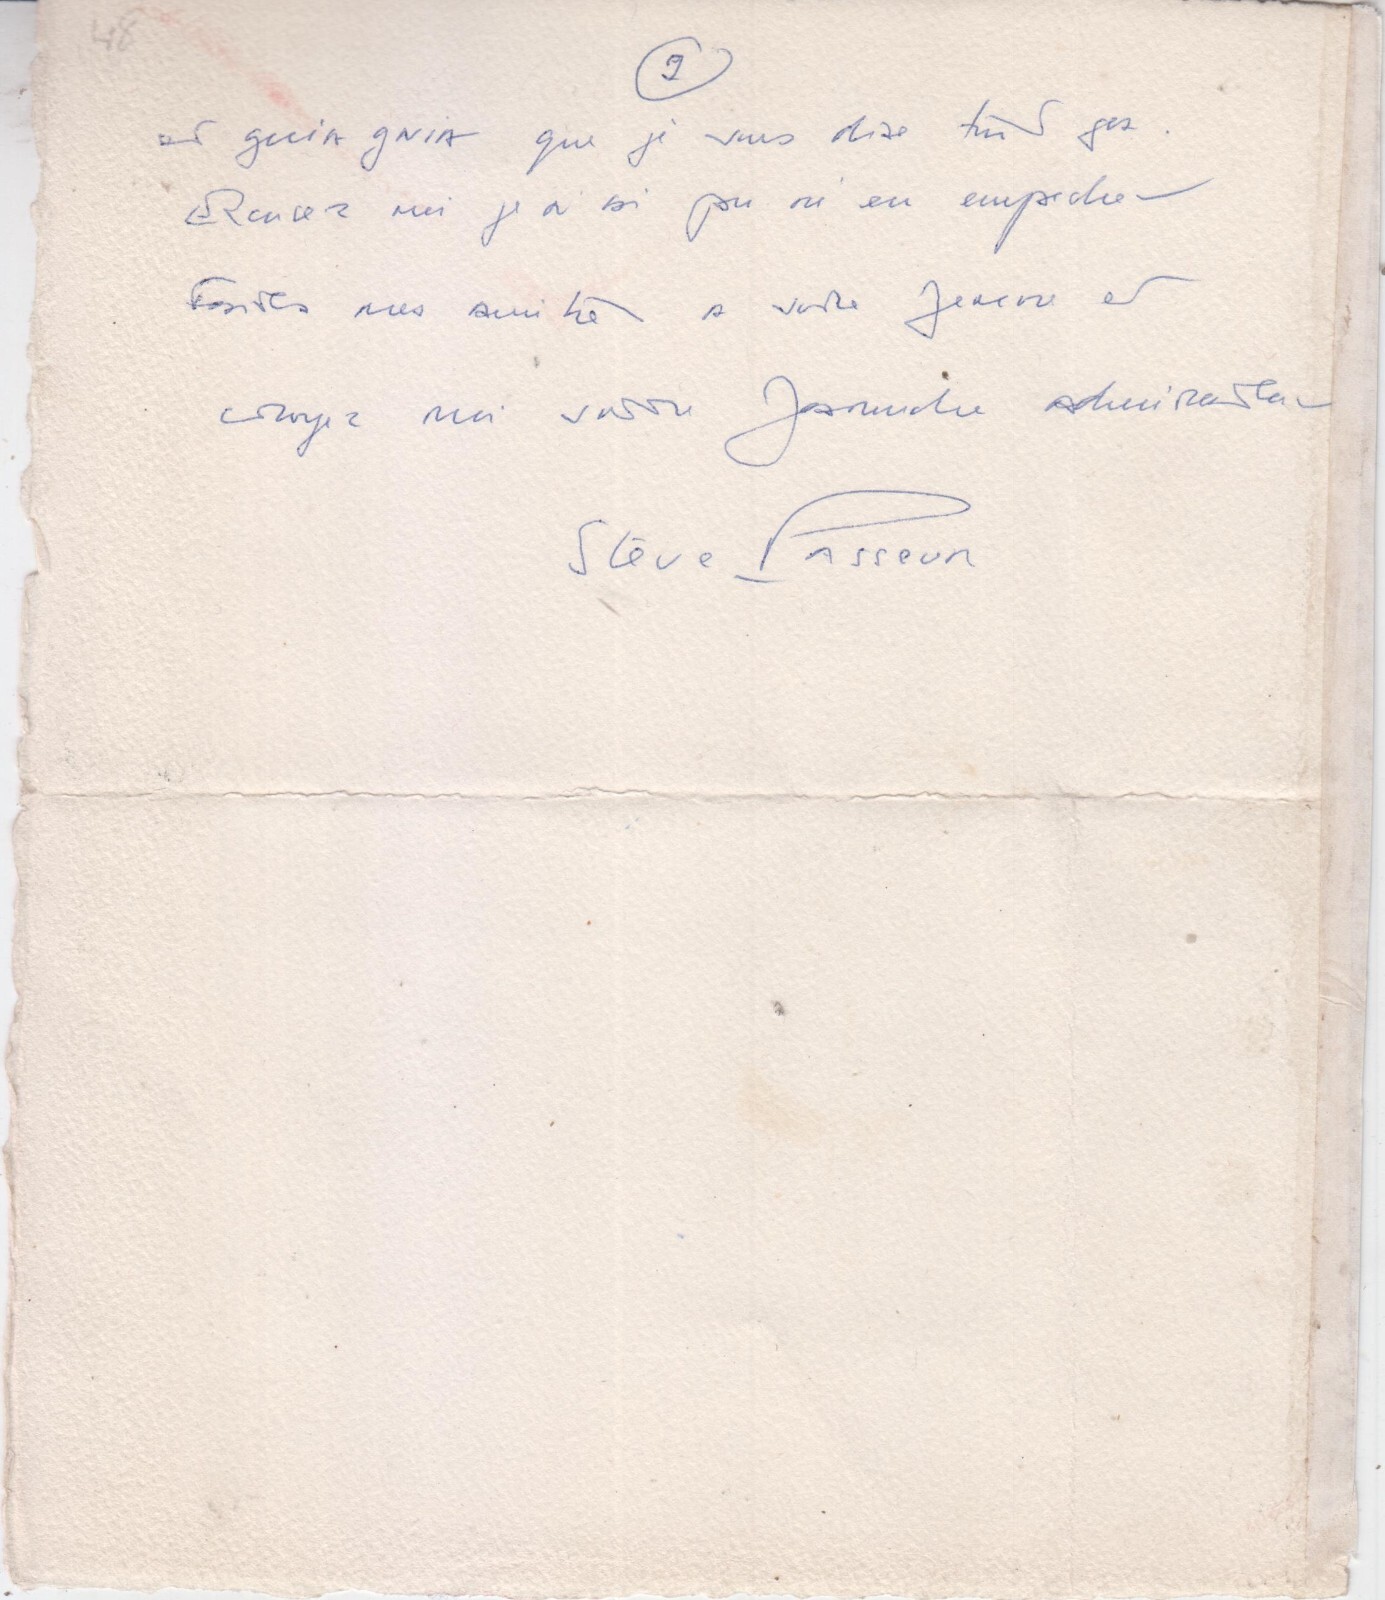 48
9
et gnia gnia que je vous dise tout ça.
Excusez moi je n'ai pu m'en empecher
Faites mes amitiés a votre femme et
croyez moi votre farouche admirateur
Stève Passeur